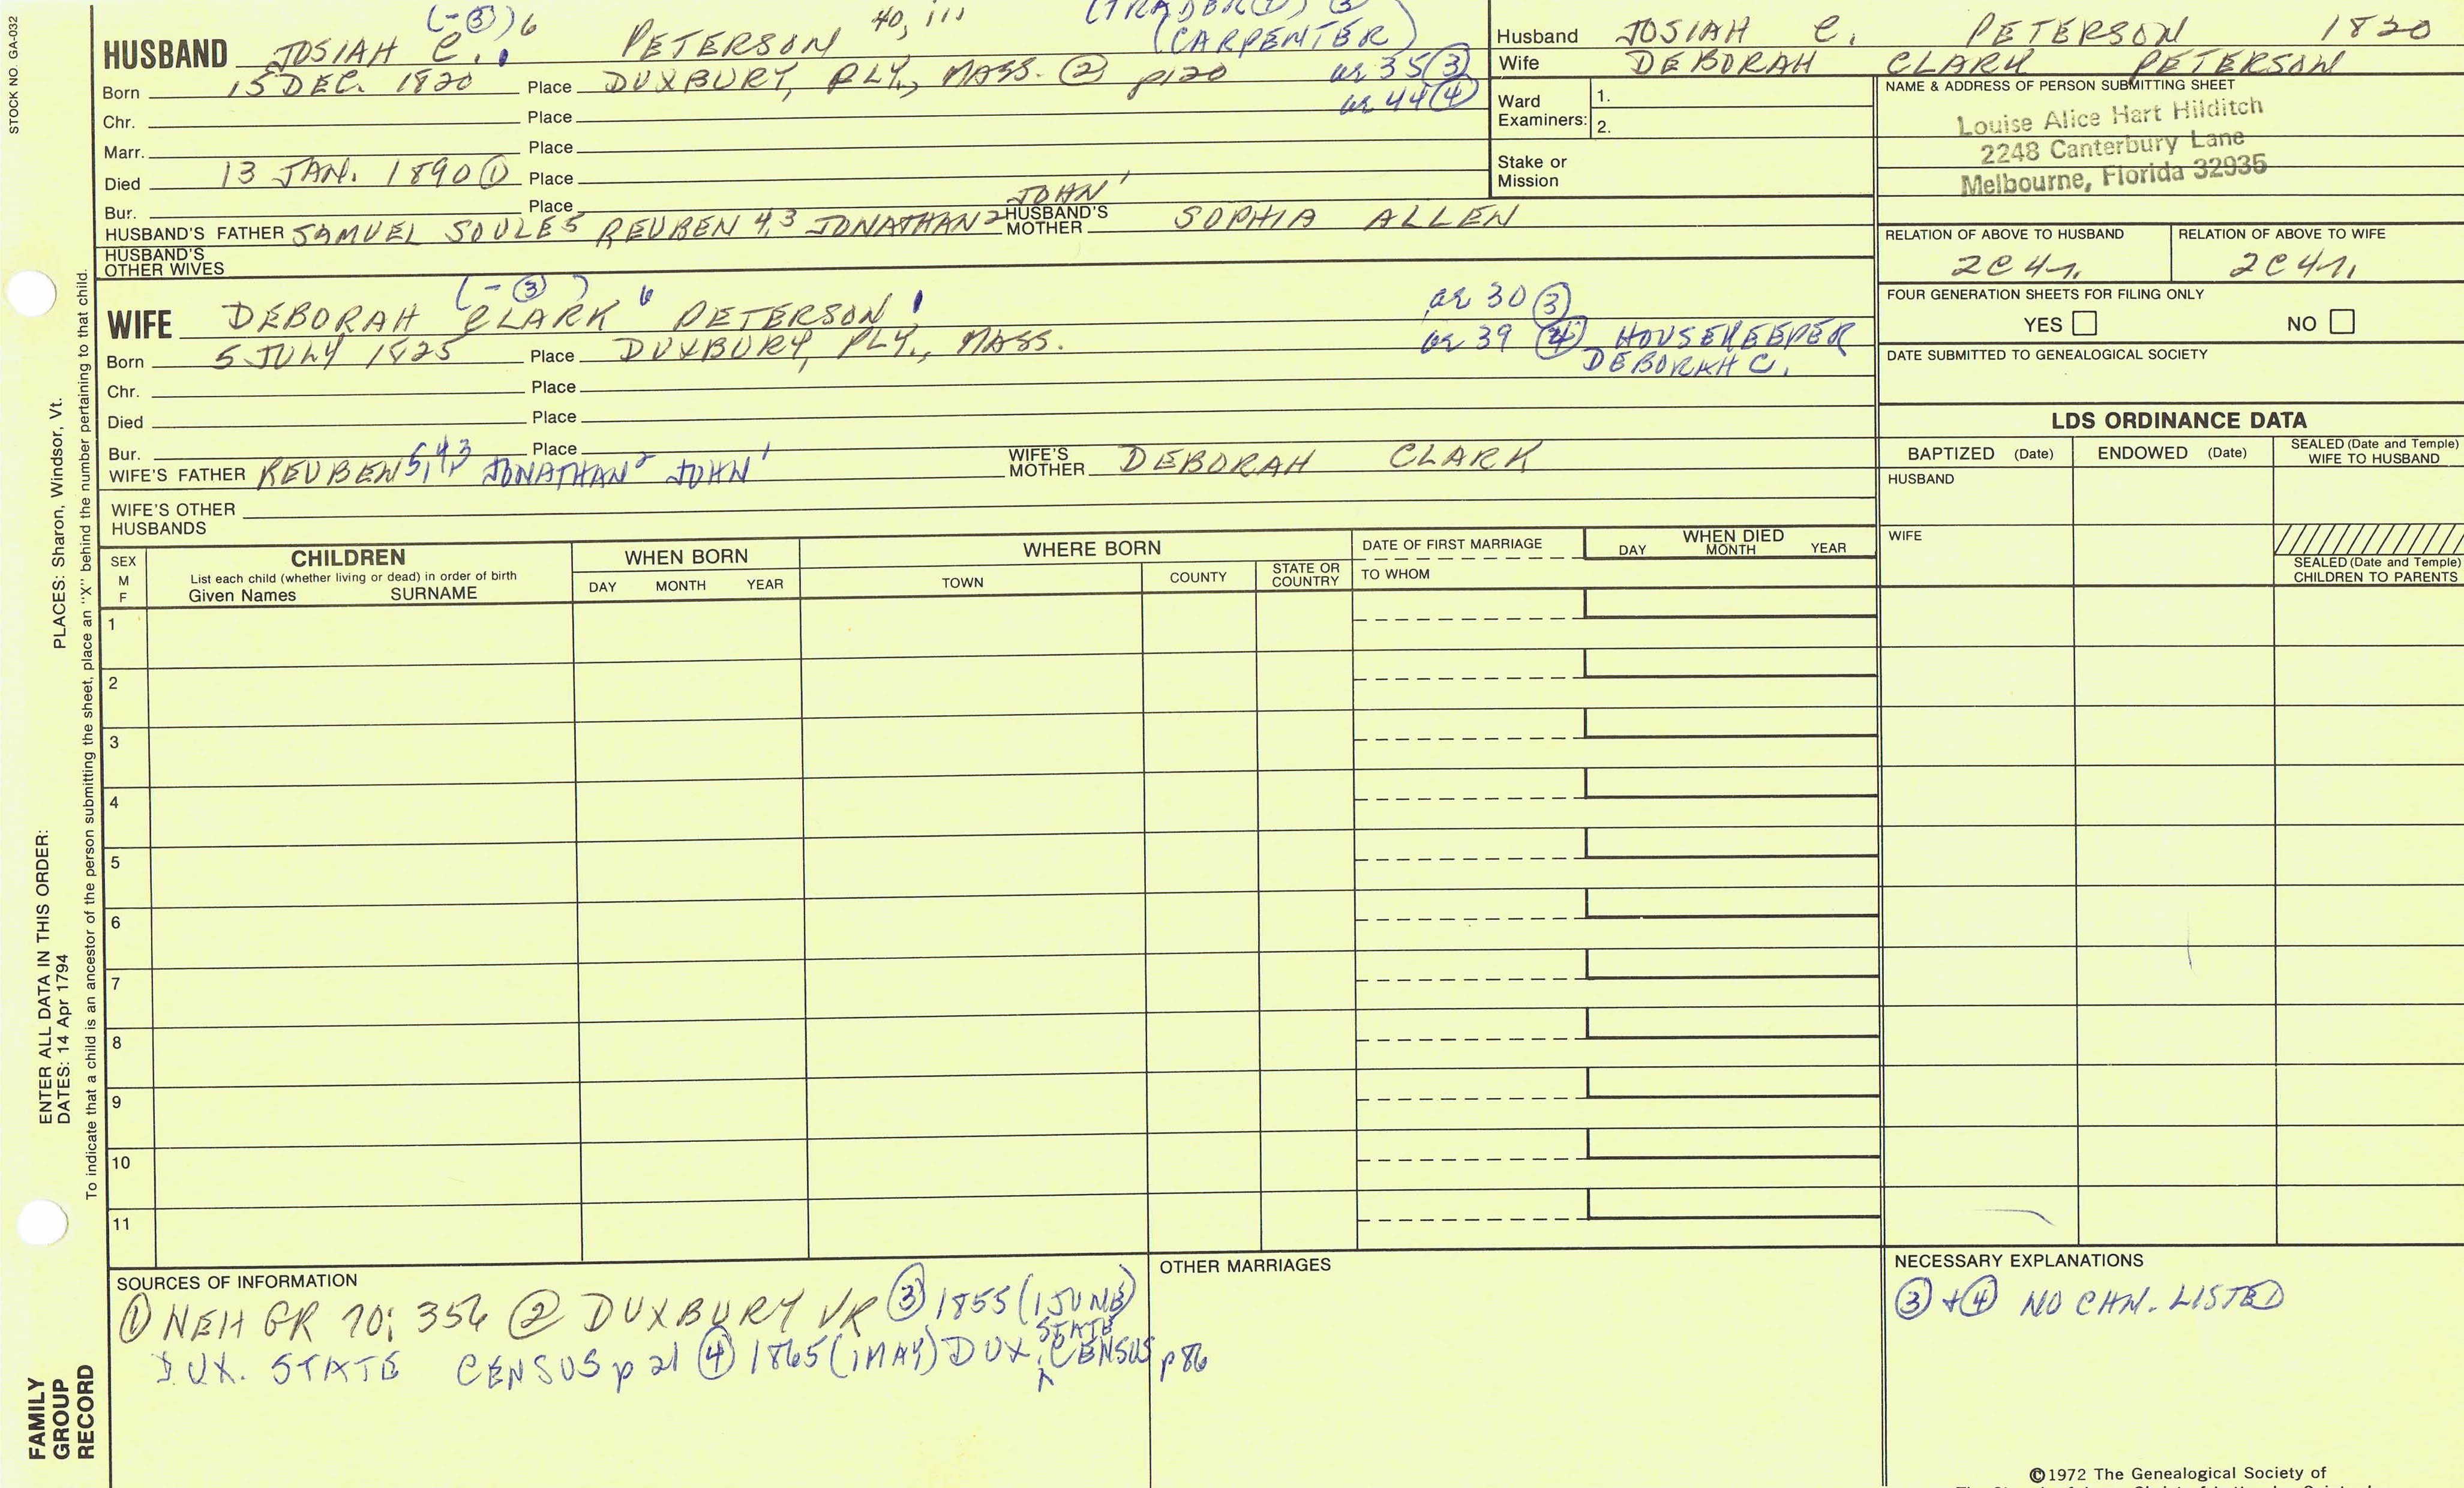 STOCK NO. GA-032
(-③)6 40, iii (TRADER(?) ③
HUSBAND JOSIAH C. PETERSON (CARPENTER)
Born 15 DEC. 1820 Place DUXBURY, PLY., MASS. ② p120 ae 35 ③
Chr. Place ae 44 ④
Marr. Place
Died 13 JAN. 1890 ① Place
Bur. Place JOHN 1
HUSBAND'S FATHER SAMUEL SOULE 5 REUBEN 4,3 JONATHAN 2 HUSBAND'S MOTHER SOPHIA ALLEN
HUSBAND'S OTHER WIVES
(-③)
WIFE DEBORAH CLARK 6 PETERSON ae 30 ③
Born 5 JULY 1825 Place DUXBURY, PLY., MASS. ae 39 ④ HOUSEKEEPER
DEBORAH C.
Chr. Place
Died Place
Bur. Place
WIFE'S FATHER REUBEN 5,4,3 JONATHAN 2 JOHN 1 WIFE'S MOTHER DEBORAH CLARK
WIFE'S OTHER HUSBANDS
Husband JOSIAH C. PETERSON 1820
Wife DEBORAH CLARK PETERSON
Ward Examiners: 1.
2.
Stake or Mission
NAME & ADDRESS OF PERSON SUBMITTING SHEET
Louise Alice Hart Hilditch
2248 Canterbury Lane
Melbourne, Florida 32935
RELATION OF ABOVE TO HUSBAND RELATION OF ABOVE TO WIFE
2C 4r. 2C 4r.
FOUR GENERATION SHEETS FOR FILING ONLY
YES NO
DATE SUBMITTED TO GENEALOGICAL SOCIETY
LDS ORDINANCE DATA
BAPTIZED (Date) ENDOWED (Date) SEALED (Date and Temple) WIFE TO HUSBAND
HUSBAND
WIFE
SEALED (Date and Temple) CHILDREN TO PARENTS
SEX M F
CHILDREN
List each child (whether living or dead) in order of birth
Given Names SURNAME
WHEN BORN
DAY MONTH YEAR
WHERE BORN
TOWN COUNTY STATE OR COUNTRY
DATE OF FIRST MARRIAGE
TO WHOM
WHEN DIED
DAY MONTH YEAR
1
2
3
4
5
6
7
8
9
10
11
SOURCES OF INFORMATION
① NEH GR 70; 356 ② DUXBURY VR ③ 1855 (1 JUNE)
DUX. STATE CENSUS p 21 ④ 1865 (1 MAY) DUX. STATE CENSUS p 86
OTHER MARRIAGES
NECESSARY EXPLANATIONS
③ + ④ NO CHN. LISTED
©1972 The Genealogical Society of
PLACES: Sharon, Windsor, Vt.
ENTER ALL DATA IN THIS ORDER:
DATES: 14 Apr 1794
To indicate that a child is an ancestor of the person submitting the sheet, place an "X" behind the number pertaining to that child.
FAMILY
GROUP
RECORD